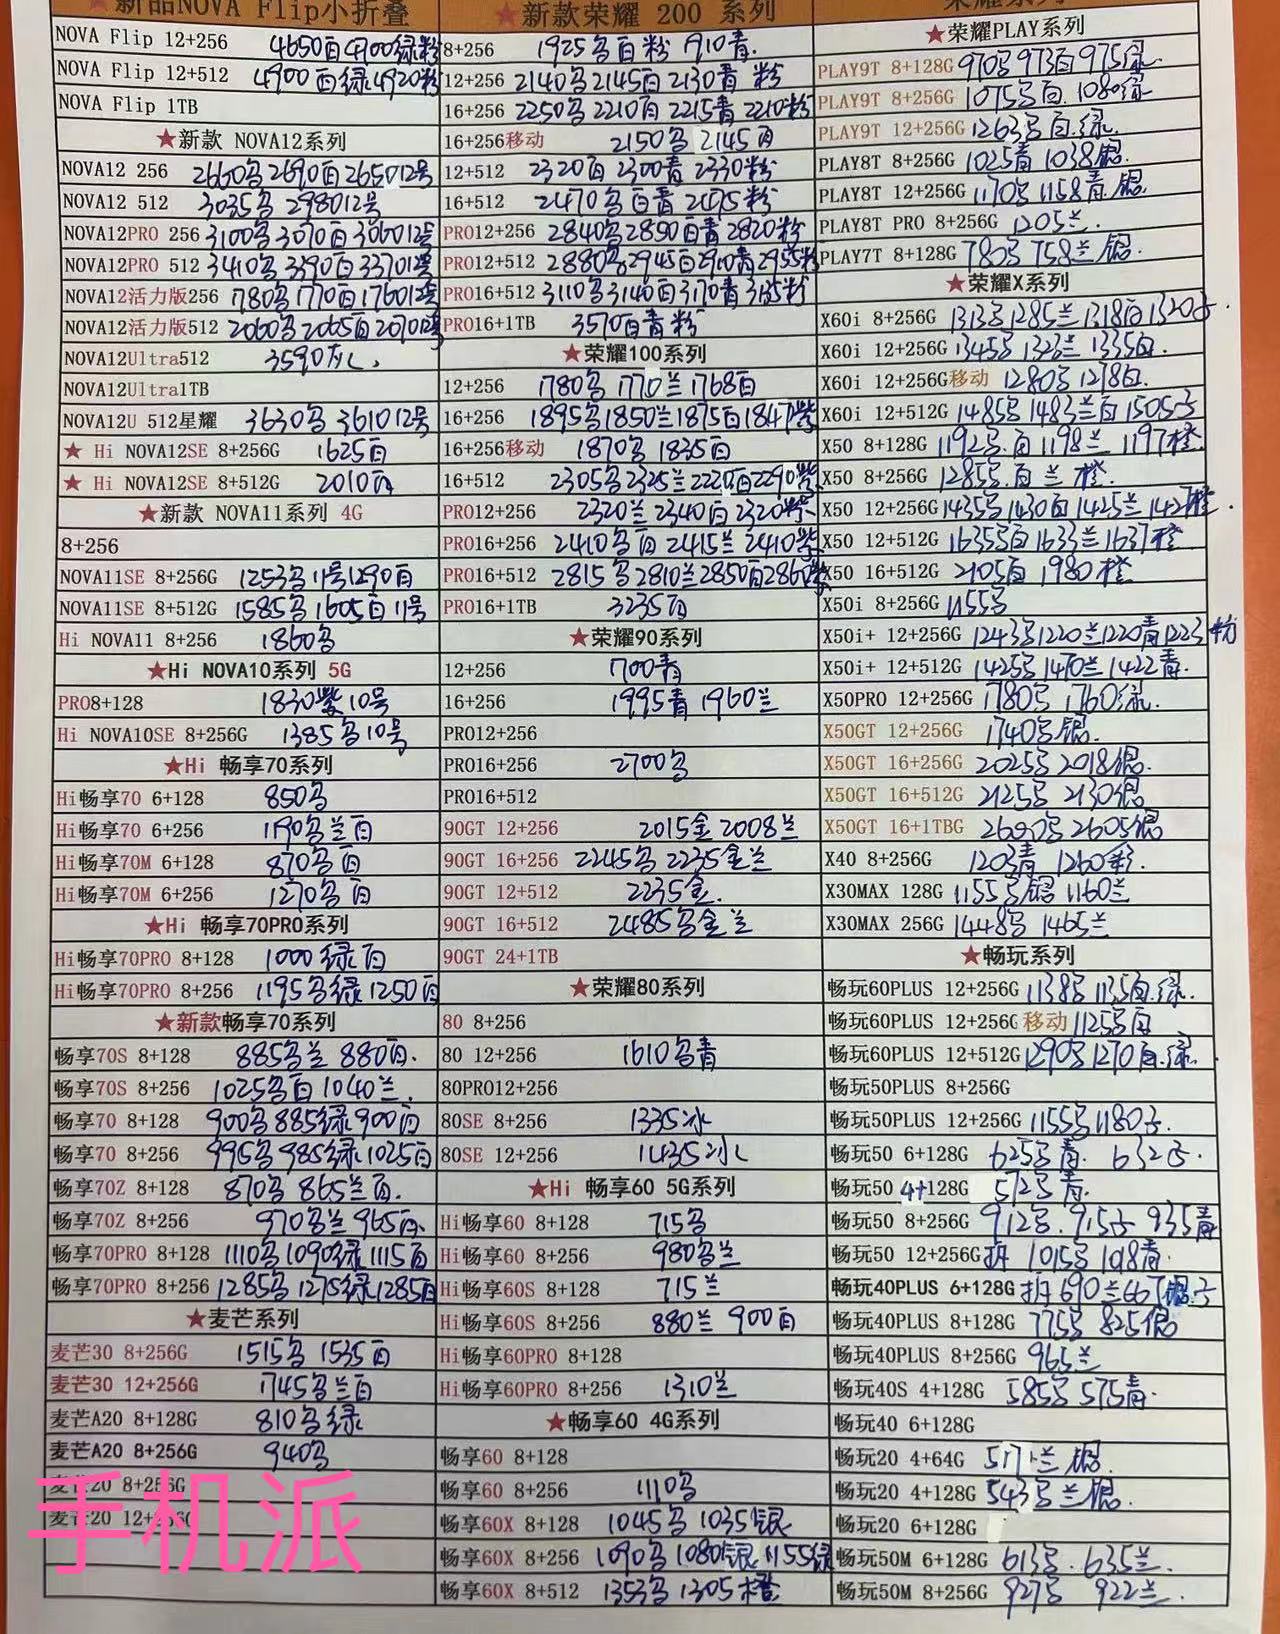 ★新品NOVA Flip小折叠
NOVA Flip 12+256 4650白4700绿粉
NOVA Flip 12+512 4900白绿4920粉
NOVA Flip 1TB
★新款 NOVA12系列
NOVA12 256 2660名2690白265012号
NOVA12 512 3035名 298012号
NOVA12PRO 256 3100名3070白306012号
NOVA12PRO 512 3410名3390白337012号
NOVA12活力版256 1780名1770白176012号
NOVA12活力版512 2060名2065白207012号
NOVA12Ultra512 3590灰
NOVA12Ultra1TB
NOVA12U 512星耀 3630名 361012号
★ Hi NOVA12SE 8+256G 1625白
★ Hi NOVA12SE 8+512G 2010白
★新款 NOVA11系列 4G
8+256
NOVA11SE 8+256G 1253名11号1290白
NOVA11SE 8+512G 1585名1605白11号
Hi NOVA11 8+256 1860名
★Hi NOVA10系列 5G
PRO8+128 1830紫10号
Hi NOVA10SE 8+256G 1385名10号
★Hi 畅享70系列
Hi畅享70 6+128 850名
Hi畅享70 6+256 1190名兰白
Hi畅享70M 6+128 870名白
Hi畅享70M 6+256 1270名白
★Hi 畅享70PRO系列
Hi畅享70PRO 8+128 1000绿白
Hi畅享70PRO 8+256 1195名绿1250白
★新款畅享70系列
畅享70S 8+128 885名兰 880白.
畅享70S 8+256 1025名白1040兰.
畅享70 8+128 900名885绿900白
畅享70 8+256 995名985绿1025白
畅享70Z 8+128 870名 865兰白.
畅享70Z 8+256 970名兰965白.
畅享70PRO 8+128 1110名1090绿1115白
畅享70PRO 8+256 1285名1275绿1285白
★麦芒系列
麦芒30 8+256G 1515名 1535白
麦芒30 12+256G 1745名兰白
麦芒A20 8+128G 810名绿
麦芒A20 8+256G 940名
麦芒20 8+256G
麦芒20 12+256G
手机派
★新款荣耀 200 系列
8+256 1925名白粉 1910青.
12+256 2140名2145白2130青 粉
16+256 2250名2210白2215青2210粉
16+256移动 2150名 2145白
12+512 2320白2300青2330粉
16+512 2470名白青2475粉
PRO12+256 2840名2850白青2820粉
PRO12+512 2880名2945白2910青2955粉
PRO16+512 3110名3140白3170青3135粉
PRO16+1TB 3570白青粉
★荣耀100系列
12+256 1780名1770兰1768白
16+256 1895名1850兰1875白1847紫
16+256移动 1870名1835白
16+512 2305名2325兰2220白2290紫
PRO12+256 2320兰2340白2320紫
PRO16+256 2410名白2415兰2410紫
PRO16+512 2815名2810兰2850白2860紫
PRO16+1TB 3235白
★荣耀90系列
12+256 1700青
16+256 1995青 1960兰
PRO12+256
PRO16+256 2700名
PRO16+512
90GT 12+256 2015金 2008兰
90GT 16+256 2245名 2235金兰
90GT 12+512 2235金.
90GT 16+512 2485名金兰
90GT 24+1TB
★荣耀80系列
80 8+256
80 12+256 1610名青
80PRO12+256
80SE 8+256 1335冰
80SE 12+256 1435冰
★Hi 畅享60 5G系列
Hi畅享60 8+128 715名
Hi畅享60 8+256 980名兰
Hi畅享60S 8+128 715兰
Hi畅享60S 8+256 880兰 900白
Hi畅享60PRO 8+128
Hi畅享60PRO 8+256 1310兰
★畅享60 4G系列
畅享60 8+128
畅享60 8+256 1110名
畅享60X 8+128 1045名1035银
畅享60X 8+256 1090名1080银1155绿
畅享60X 8+512 1353名1305橙
荣耀系列
★荣耀PLAY系列
PLAY9T 8+128G 970名973白975绿.
PLAY9T 8+256G 1075名白.1080绿
PLAY9T 12+256G 1263名白.绿.
PLAY8T 8+256G 1025青 1038银.
PLAY8T 12+256G 1170名1158青.银.
PLAY8T PRO 8+256G 1205兰.
PLAY7T 8+128G 780名 758兰银.
★荣耀X系列
X60i 8+256G 1313名1285兰1318白1320子.
X60i 12+256G 1345名1323兰1335白.
X60i 12+256G移动 1280名1278白.
X60i 12+512G 1485名1483兰白1505子
X50 8+128G 1192名.白1198兰 1197橙.
X50 8+256G 1285名.白 兰 橙.
X50 12+256G 1435名1430白1425兰1427橙.
X50 12+512G 1635名白1633兰1637橙.
X50 16+512G 2105白1980橙
X50i 8+256G 1155名
X50i+ 12+256G 1243名1220兰1220青1223粉
X50i+ 12+512G 1425名1470兰1422青.
X50PRO 12+256G 1780名 1760绿.
X50GT 12+256G 1740名银.
X50GT 16+256G 2025名 2018银.
X50GT 16+512G 2125名 2130银
X50GT 16+1TBG 2600名2605银
X40 8+256G 1203青 1260彩.
X30MAX 128G 1155名银1160兰
X30MAX 256G 1448名 1465兰
★畅玩系列
畅玩60PLUS 12+256G 1138名1135白.绿.
畅玩60PLUS 12+256G 移动 1125名白
畅玩60PLUS 12+512G 1290名1270白.绿.
畅玩50PLUS 8+256G
畅玩50PLUS 12+256G 1155名1180子.
畅玩50 6+128G 625名青. 632子.
畅玩50 4+128G 572名青.
畅玩50 8+256G 912名.915子 935青
畅玩50 12+256G 拆 1015名1018青.
畅玩40PLUS 6+128G 拆690兰667银.子
畅玩40PLUS 8+128G 775名 825银
畅玩40PLUS 8+256G 965兰
畅玩40S 4+128G 585名575青.
畅玩40 6+128G
畅玩20 4+64G 兰 银.
畅玩20 4+128G 543名兰银.
畅玩20 6+128G
畅玩50M 6+128G 613名.635兰.
畅玩50M 8+256G 927名 922兰.